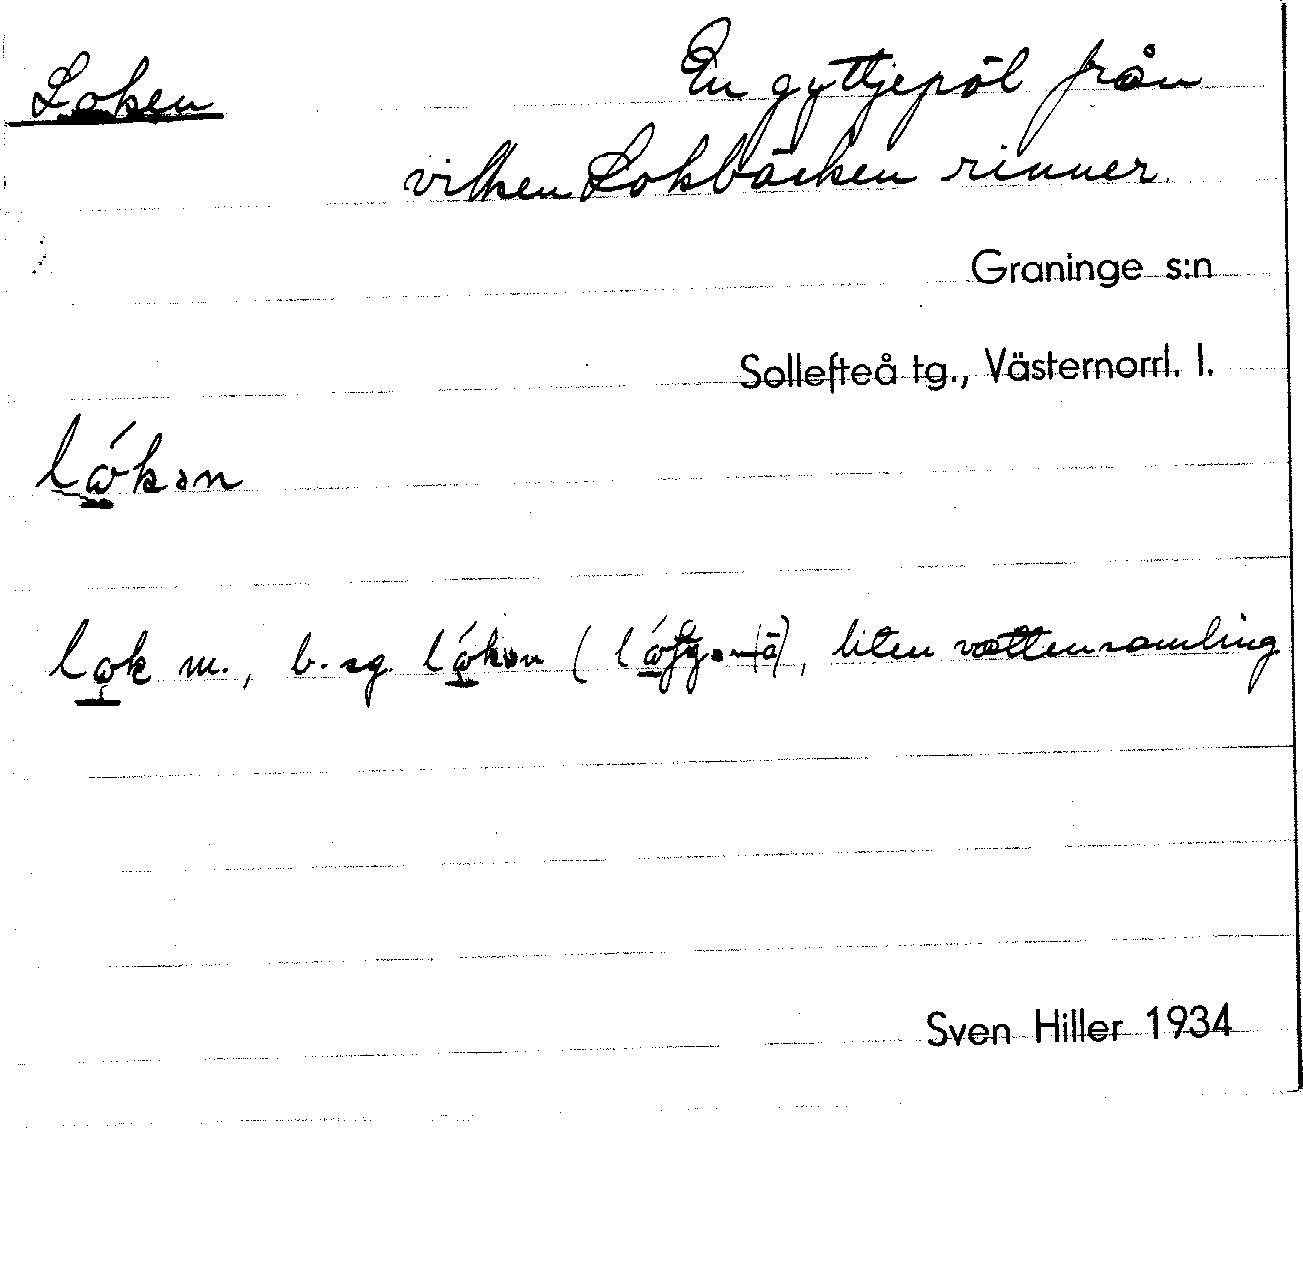 Loken
En gyttjepöl från
vilken Lokbäcken rinner.
Graninge s:n
Sollefteå tg., Västernorrl. l.
lok m., b. sg. , liten vattensamling
Sven Hiller 1934